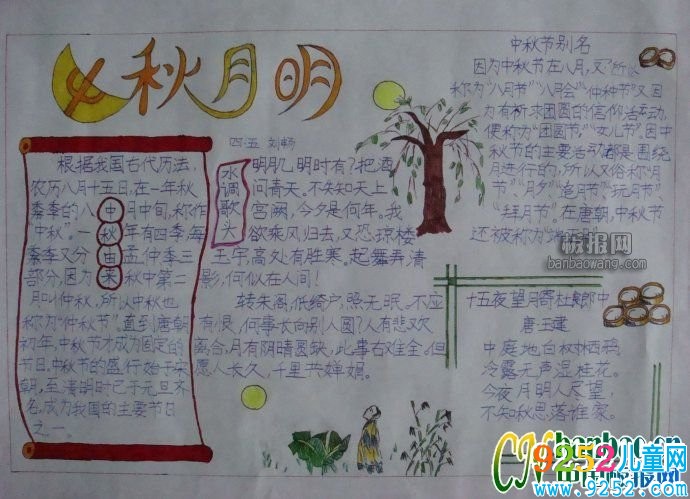 中秋月明
四.五 刘畅
根据我国古代历法,
农历八月十五日,在一年秋
季的八月中旬,称作
"中秋"。一年有四季,每
季又分孟仲季三
部分,因为秋中第二
月叫仲秋,所以中秋也
称为"仲秋节"。直到唐朝
初年,中秋节才成为固定的
节日,中秋节的盛行始于宋
朝,至清明时已于元旦齐
名,成为我国的主要节日
之一。
中
秋
由
来
水调歌头
明月几时有?把酒
问青天。不知天上
宫阙,今夕是何年。我
欲乘风归去,又恐琼楼
玉宇高处有胜寒。起舞弄清
影,何似在人间!
转朱阁,低绮户,照无眠。不应
有恨,何事长向别人圆?人有悲欢
离合,月有阴晴圆缺,此事古难全。但
愿人长久,千里共婵娟。
中秋节别名
因为中秋节在八月,又所以
称为"八月节""八月会""仲秋节"又因
为有祈求团圆的信仰活动,
便称为"团圆节""女儿节"。因中
秋节的主要活动都是围绕
月进行的,所以又俗称"月
节""月夕""追月节""玩月节"
"拜月节"。在唐朝,中秋节
还被称为
十五夜望月寄杜郎中
唐王建
中庭地白树栖鸦
冷露无声湿桂花。
今夜月明人尽望,
不知秋思落谁家。
板报网
banbaowang.com
banbao.cn
中国板报网
9252儿童网
www.9252.com